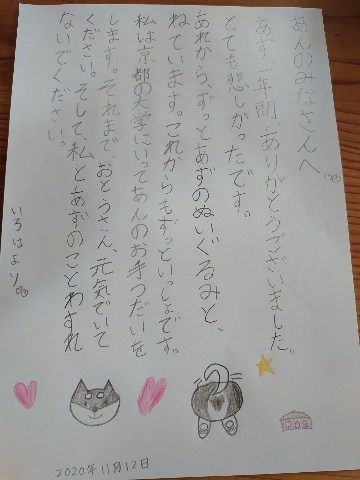 あんのみなさんへ。
あず、一年間、ありがとうございました。
とても悲しかったです。
あれから、ずっとあずのぬいぐるみと、
ねています。これからもずっといっしょです。
私は京都の大学にいってあんのお手つだいを
します。それまで、おとうさん、元気でいて
ください。そして、私とあずのことわすれ
ないでください。
いろはより。
2020年11月12日